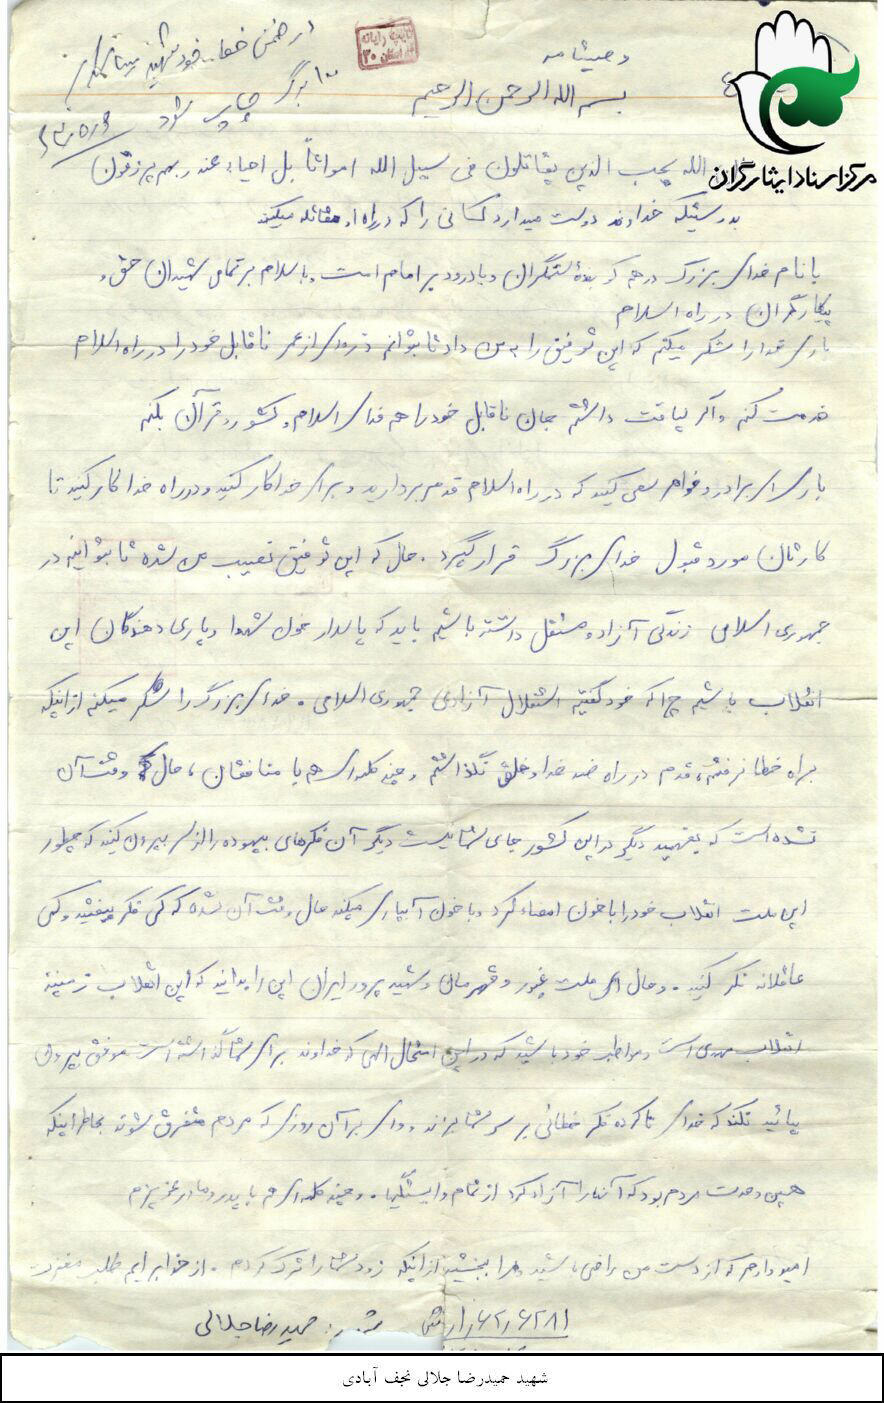 در ضمن خطاب خود شهید
۱۰ برگ چاپ شود
تایپ رایانه
۳۰
وصیتنامه
بسم الله الرحمن الرحیم
مرکز اسناد ایثارگران
الله یحب الذین یقاتلون فی سبیل الله امواتاً بل احیاء عند ربهم یرزقون
بدرستیکه خداوند دوست میدارد کسانی را که در راه او مقاتله میکنند
با نام خدای بزرگ درهم کوبندهٔ ستمگران و با درود بر امام امت و با سلام بر تمامی شهیدان حق و
پیکارگران در راه اسلام
باری خدا را شکر میکنم که این توفیق را به من داد تا بتوانم ذره‌ای از عمر ناقابل خود را در راه اسلام
خدمت کنم و اگر لیاقت داشتم جان ناقابل خود را هم فدای اسلام و کشور و قرآن بکنم
باری ای برادر و خواهر سعی کنید که در راه اسلام قدم بردارید و برای خدا کار کنید و در راه خدا کار کنید تا
کارتان مورد قبول خدای بزرگ قرار گیرد. حال که این توفیق نصیب من شده تا بتوانیم در
جمهوری اسلامی زندگی آزاد و مستقل داشته باشیم باید که پاسدار خون شهدا و یاری دهندگان این
انقلاب باشیم چرا که خود گفتیم استقلال آزادی جمهوری اسلامی. خدای بزرگ را شکر میکنم از اینکه
براه خطا نرفتم، قدم در راه ضد خدا و خلق نگذاشتم و چند کلمه‌ای هم با منافقان، حال وقت آن
نشده است که بفهمید دیگر در این کشور جای شما نیست دیگر آن فکرهای بیهوده را از سر بیرون کنید که چطور
این ملت انقلاب خود را با خون امضاء کرد و با خون آبیاری میکند حال وقت آن نشده که کمی فکر بیفتید و کمی
عاقلانه فکر کنید. و حال ای ملت غیور و قهرمان و شهید پرور ایران این را بدانید که این انقلاب زمینه
انقلاب مهدی است و مواظب خود باشید که در این امتحال الهی که خداوند برای شما گذاشته است موفق بیرون
بیائید نکند که خدای نا کرده فکر خطائی بر سر شما بزند و وای بر آن روزی که مردم متفرق شوند بخاطر اینکه
همین وحدت مردم بود که آنها را آزاد کرد از تمام وابستگیها. و چند کلمه‌ای هم با پدر و مادر عزیزم
امیدوارم که از دست من راضی باشید و مرا ببخشید از اینکه زود شما را ترک کردم. از خواهرانم طلب مغفرت
حمیدرضا جلالی
شهید حمیدرضا جلالی نجف آبادی